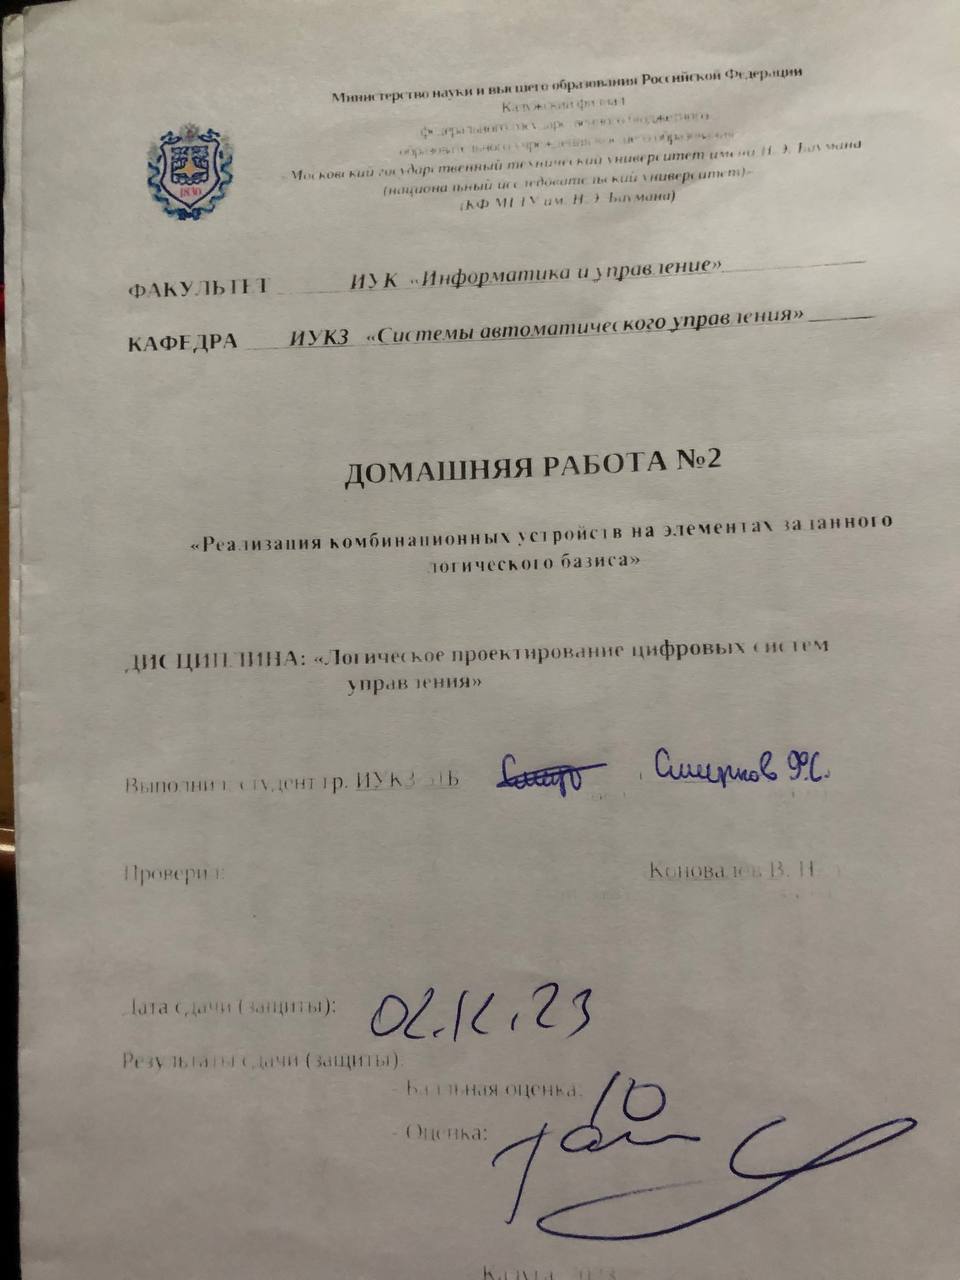 Министерство науки и высшего образования Российской Федерации
Калужский филиал
федерального государственного бюджетного
образовательного учреждения высшего образования
«Московский государственный технический университет имени Н. Э. Баумана
(национальный исследовательский университет)»
(КФ МГТУ им. Н. Э. Баумана)
1830
ФАКУЛЬТЕТ ИУК «Информатика и управление»
КАФЕДРА ИУК3 «Системы автоматического управления»
ДОМАШНЯЯ РАБОТА №2
«Реализация комбинационных устройств на элементах заданного
логического базиса»
ДИСЦИПЛИНА: «Логическое проектирование цифровых систем
управления»
Выполнил: студент гр. ИУК3 Смирнов
Проверил: Коновалов В. Н.
Дата сдачи (защиты): 02.12.23
Результаты сдачи (защиты):
- Балльная оценка: 10
- Оценка:
Калуга